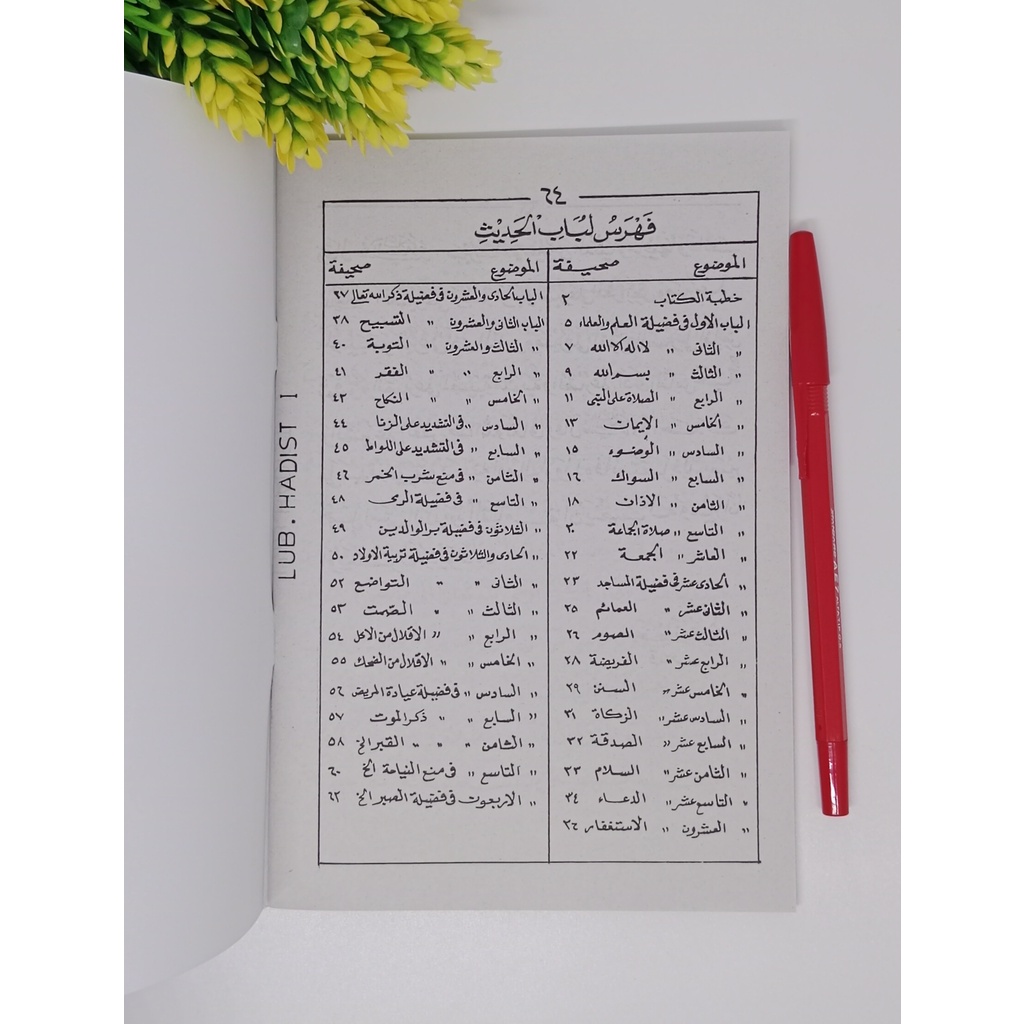 ٦٤
فَهْرَسُ لُبَابِ الْحَدِيْثِ
الموضوع صحيفة
خطبة الكتاب ٢
الباب الاول فى فضيلة العلم والعلماء ٥
〃 الثانى 〃 لااله الاالله ٧
〃 الثالث 〃 بسم الله ٩
〃 الرابع 〃 الصلاة على النبى ١١
〃 الخامس 〃 الإيمان ١٣
〃 السادس 〃 الوضوء ١٥
〃 السابع 〃 السواك ١٦
〃 الثامن 〃 الاذان ١٨
〃 التاسع 〃 صلاة الجماعة ٢٠
〃 العاشر 〃 الجمعة ٢٢
〃 الحادى عشر فى فضيلة المساجد ٢٣
〃 الثانى عشر 〃 العمائم ٢٥
〃 الثالث عشر 〃 الصوم ٢٦
〃 الرابع عشر 〃 الفريضة ٢٨
〃 الخامس عشر 〃 السنن ٢٩
〃 السادس عشر 〃 الزكاة ٣١
〃 السابع عشر 〃 الصدقة ٣٢
〃 الثامن عشر 〃 السلام ٣٣
〃 التاسع عشر 〃 الدعاء ٣٤
〃 العشرون 〃 الاستغفار ٣٦
الموضوع صحيفة
الباب الحادى والعشرون فى فضيلة ذكر الله تعالى ٣٧
الباب الثانى والعشرون 〃 التسبيح ٣٨
〃 الثالث والعشرون 〃 التوبة ٤٠
〃 الرابع 〃 〃 الفقر ٤١
〃 الخامس 〃 〃 النكاح ٤٣
〃 السادس 〃 فى التشديد على الزنا ٤٤
〃 السابع 〃 فى التشديد على اللواط ٤٥
〃 الثامن 〃 فى منع شرب الخمر ٤٦
〃 التاسع 〃 فى فضيلة الرمى ٤٨
〃 الثلاثون فى فضيلة بر الوالدين ٤٩
〃 الحادى والثلاثون فى فضيلة تربية الاولاد ٥٠
〃 الثانى 〃 〃 التواضع ٥٢
〃 الثالث 〃 〃 الصمت ٥٣
〃 الرابع 〃 〃 الاقلال من الاكل ٥٤
〃 الخامس 〃 〃 الاقلال من الضحك ٥٥
〃 السادس 〃 فى فضيلة عيادة المريض ٥٦
〃 السابع 〃 〃 ذكر الموت ٥٧
〃 الثامن 〃 〃 القبر الخ ٥٨
〃 التاسع 〃 فى منع النياحة الخ ٦٠
〃 الاربعون فى فضيلة الصبر الخ ٦٢
LUB. HADIST I